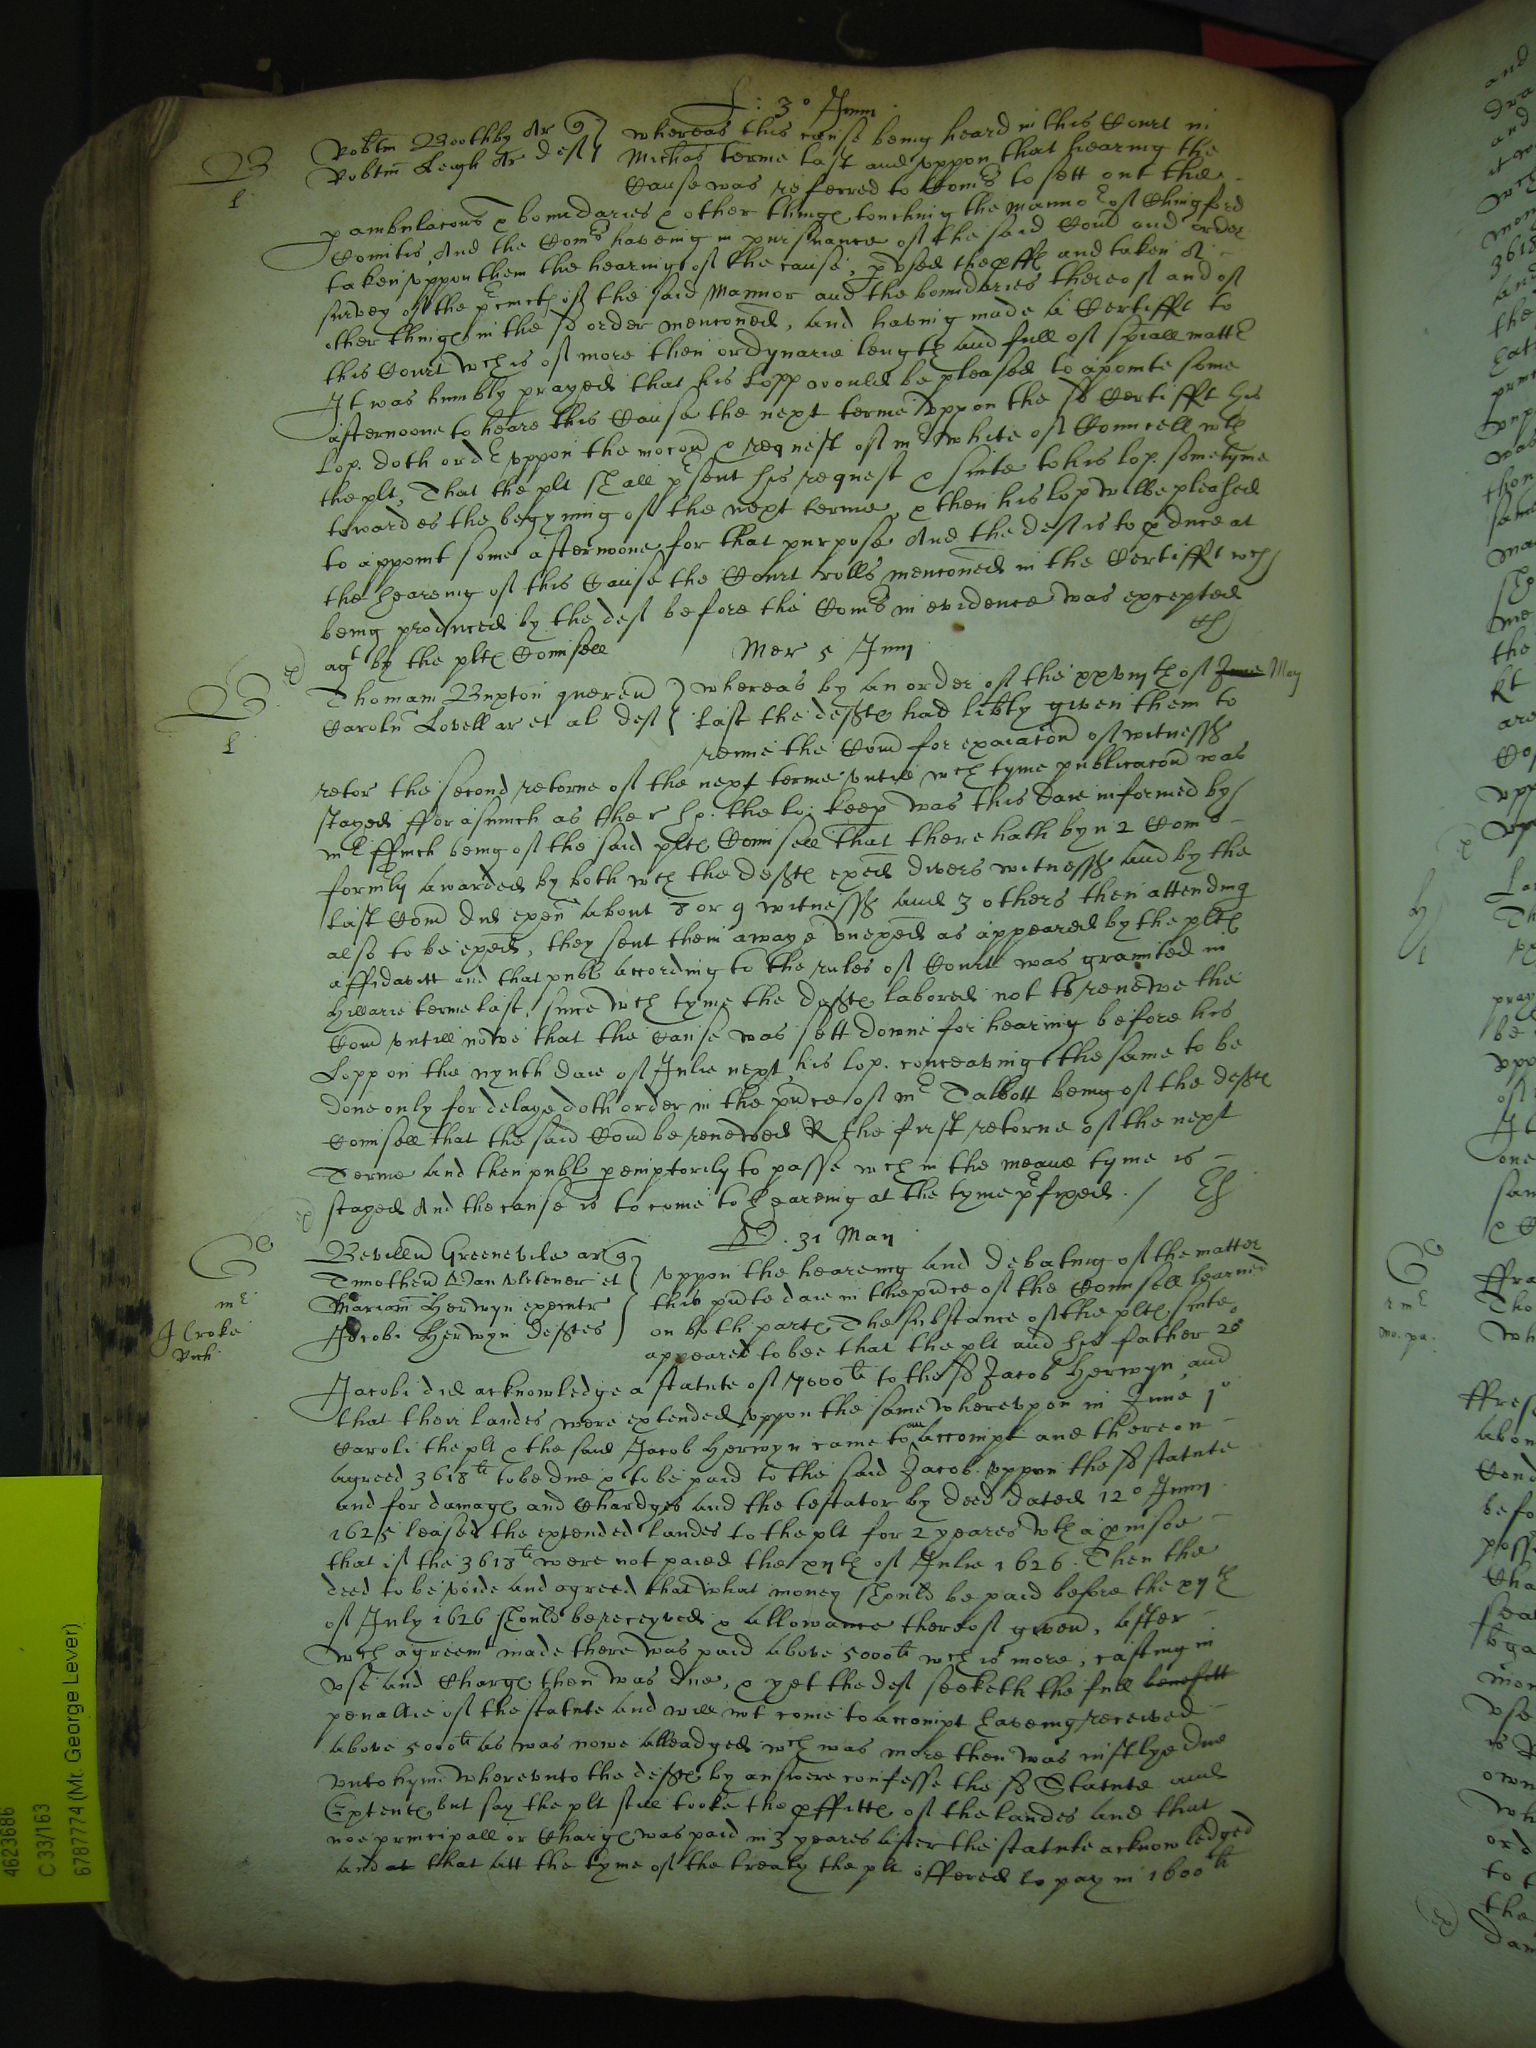 L: 3° Junii
B
l
Robtm Boothby Ar q
Robtm Leigh Ar deft
whereas this cause being heard in this Court in
Michas terme last and uppon that hearing the
Cause was referred to Comrs to sett out the
pambulacons & boundaries & other things touching the mannor of Chingford
Comitis, And the Comrs haveing in pursuance of the said Com and order
taken uppon them the hearing of the cause, pused the and taken A
survey of the pmctes of the said Mannor and the boundaries thereof and of
other things in the sd order menconed, and having made a Certifft to
this Court wch is of more then ordynarie length and full of spiall mattr
It was humbly prayed that his Lopp would be pleased to apointe some
afternoone to heare this Cause the next terme uppon the sd Certifft his
Lop. doth ordr uppon the mocon & request of mr White of Councell wth
the plt, That the plt shall psent his request & suite to his lop. sometyme
towardes the begyning of the next terme, & then his lop wilbe pleased
to appoint some afternoone for that purpose And the deft is to pduce at
the heareing of this Cause the Court rolls menconed in the Certifft wch
being produced by the deft before the Comrs in evidence was excepted
agt by the pltes Counsell
Mer 5 Junii
B
l
Thomam Buxton quereñ
Carolu Lovell ar et al deft
whereas by an order of the xxviijth of June May
last the deftes had libty given them to
renue the Com for exaiacon of witnesses
retor the second retorne of the next terme untill wch tyme publicacon was
stayed fforasmuch as the r hp. the lo: keep was this daie informed by
mr ffinch being of the said pltes Counsell that there hath byn 2 Comrs
formly awarded by both wch the deftes exed divers witnesses and by the
last Com did exen about 8 or 9 witnesses and 3 others then attending
also to be exed, they sent them awaye unexed as appeared by the pltes
affidavitt and that publ according to the rules of Court was graunted in
Hillarie terme last, since wch tyme the deftes labored not to renewe the
Com untill nowe that the cause was sett downe for hearing before his
Lopp on the nynth daie of Julie next, his lop. conceaving the same to be
done only for delaye doth order in the pnce of mr Talbott being of the deftes
Counsell that the said Com be renewed R the first retorne of the next
Terme and then publ pemptorily to passe wch in the meane tyme is
stayed And the cause is to come to heareing at the tyme pfixed. /
31 Maij
Co
mr
J Croke
Bevillu Greenevile ar q
Timotheu Van Vleteren et
Mariam Herwyn executr
Jacobi Herwyn deftes
uppon the heareing and debating of the matter
this pnte daie in the pnce of the Counsell learned
on both partes The substance of the pltes suite
appeared to bee that the plt and his father 20°
Jacobi did acknowledge a statute of 7000li to the sd Jacob Herwyn and
that their landes were extended uppon the same whereupon in June 1°
Caroli the plt & the said Jacob Herwyn came to an accompt and thereon
agreed 3618li to be due & to be paid to the said Jacob uppon the sd statute
and for damages and Chardges and the testator by deed dated 12° Junii
1625 leased the extended landes to the plt for 2 yeares wth a pviso
that if the 3618li were not paied the xijth of Julie 1626. Then the
deed to be voide and agreed that what money should be paid before the xijth
of July 1626 should be receyved & allowance thereof given, after
wch agreemt made there was paid above 5000li wch is more, casting in
use and Charges then was due, & yet the deft seeketh the full benefitt
penaltie of the statute and will not come to accompt haveing received
above 5000li as was nowe alleadged wch was more then was iustlye due
unto hym whereunto the deftes by answere confesse the sd Statute and
Extentes, but say the plt still tooke the pffittes of the landes and that
noe principall or Charges was paid in 3 yeares after the statute acknowledged
and at that att the tyme of the treaty the plt offered to pay in 1600li
4623686
C 33/163
6787774 (Mr. George Lever)